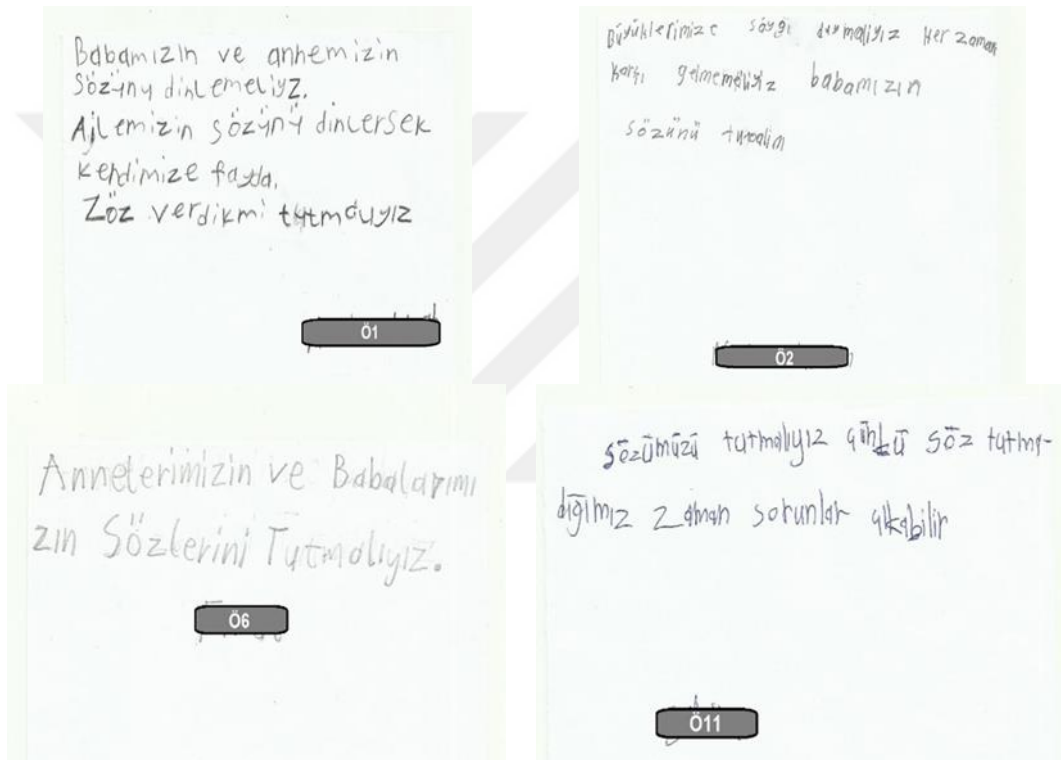 Babamızın ve annemizin
Sözünü dinlemeliyz.
Ailemizin sözünü dinlersek
kendimize fayda.
Zöz verdikmi tutmalıyız
Ö1
Büyüklerimize saygı duymalıyız Her zaman
karşı gelmemeliyiz babamızın
sözünü tutalım
Ö2
Annelerimizin ve Babalarımı
zın Sözlerini Tutmalıyız.
Ö6
sözümüzü tutmalıyız çünkü söz tutma-
dığımız zaman sorunlar çıkabilir
Ö11